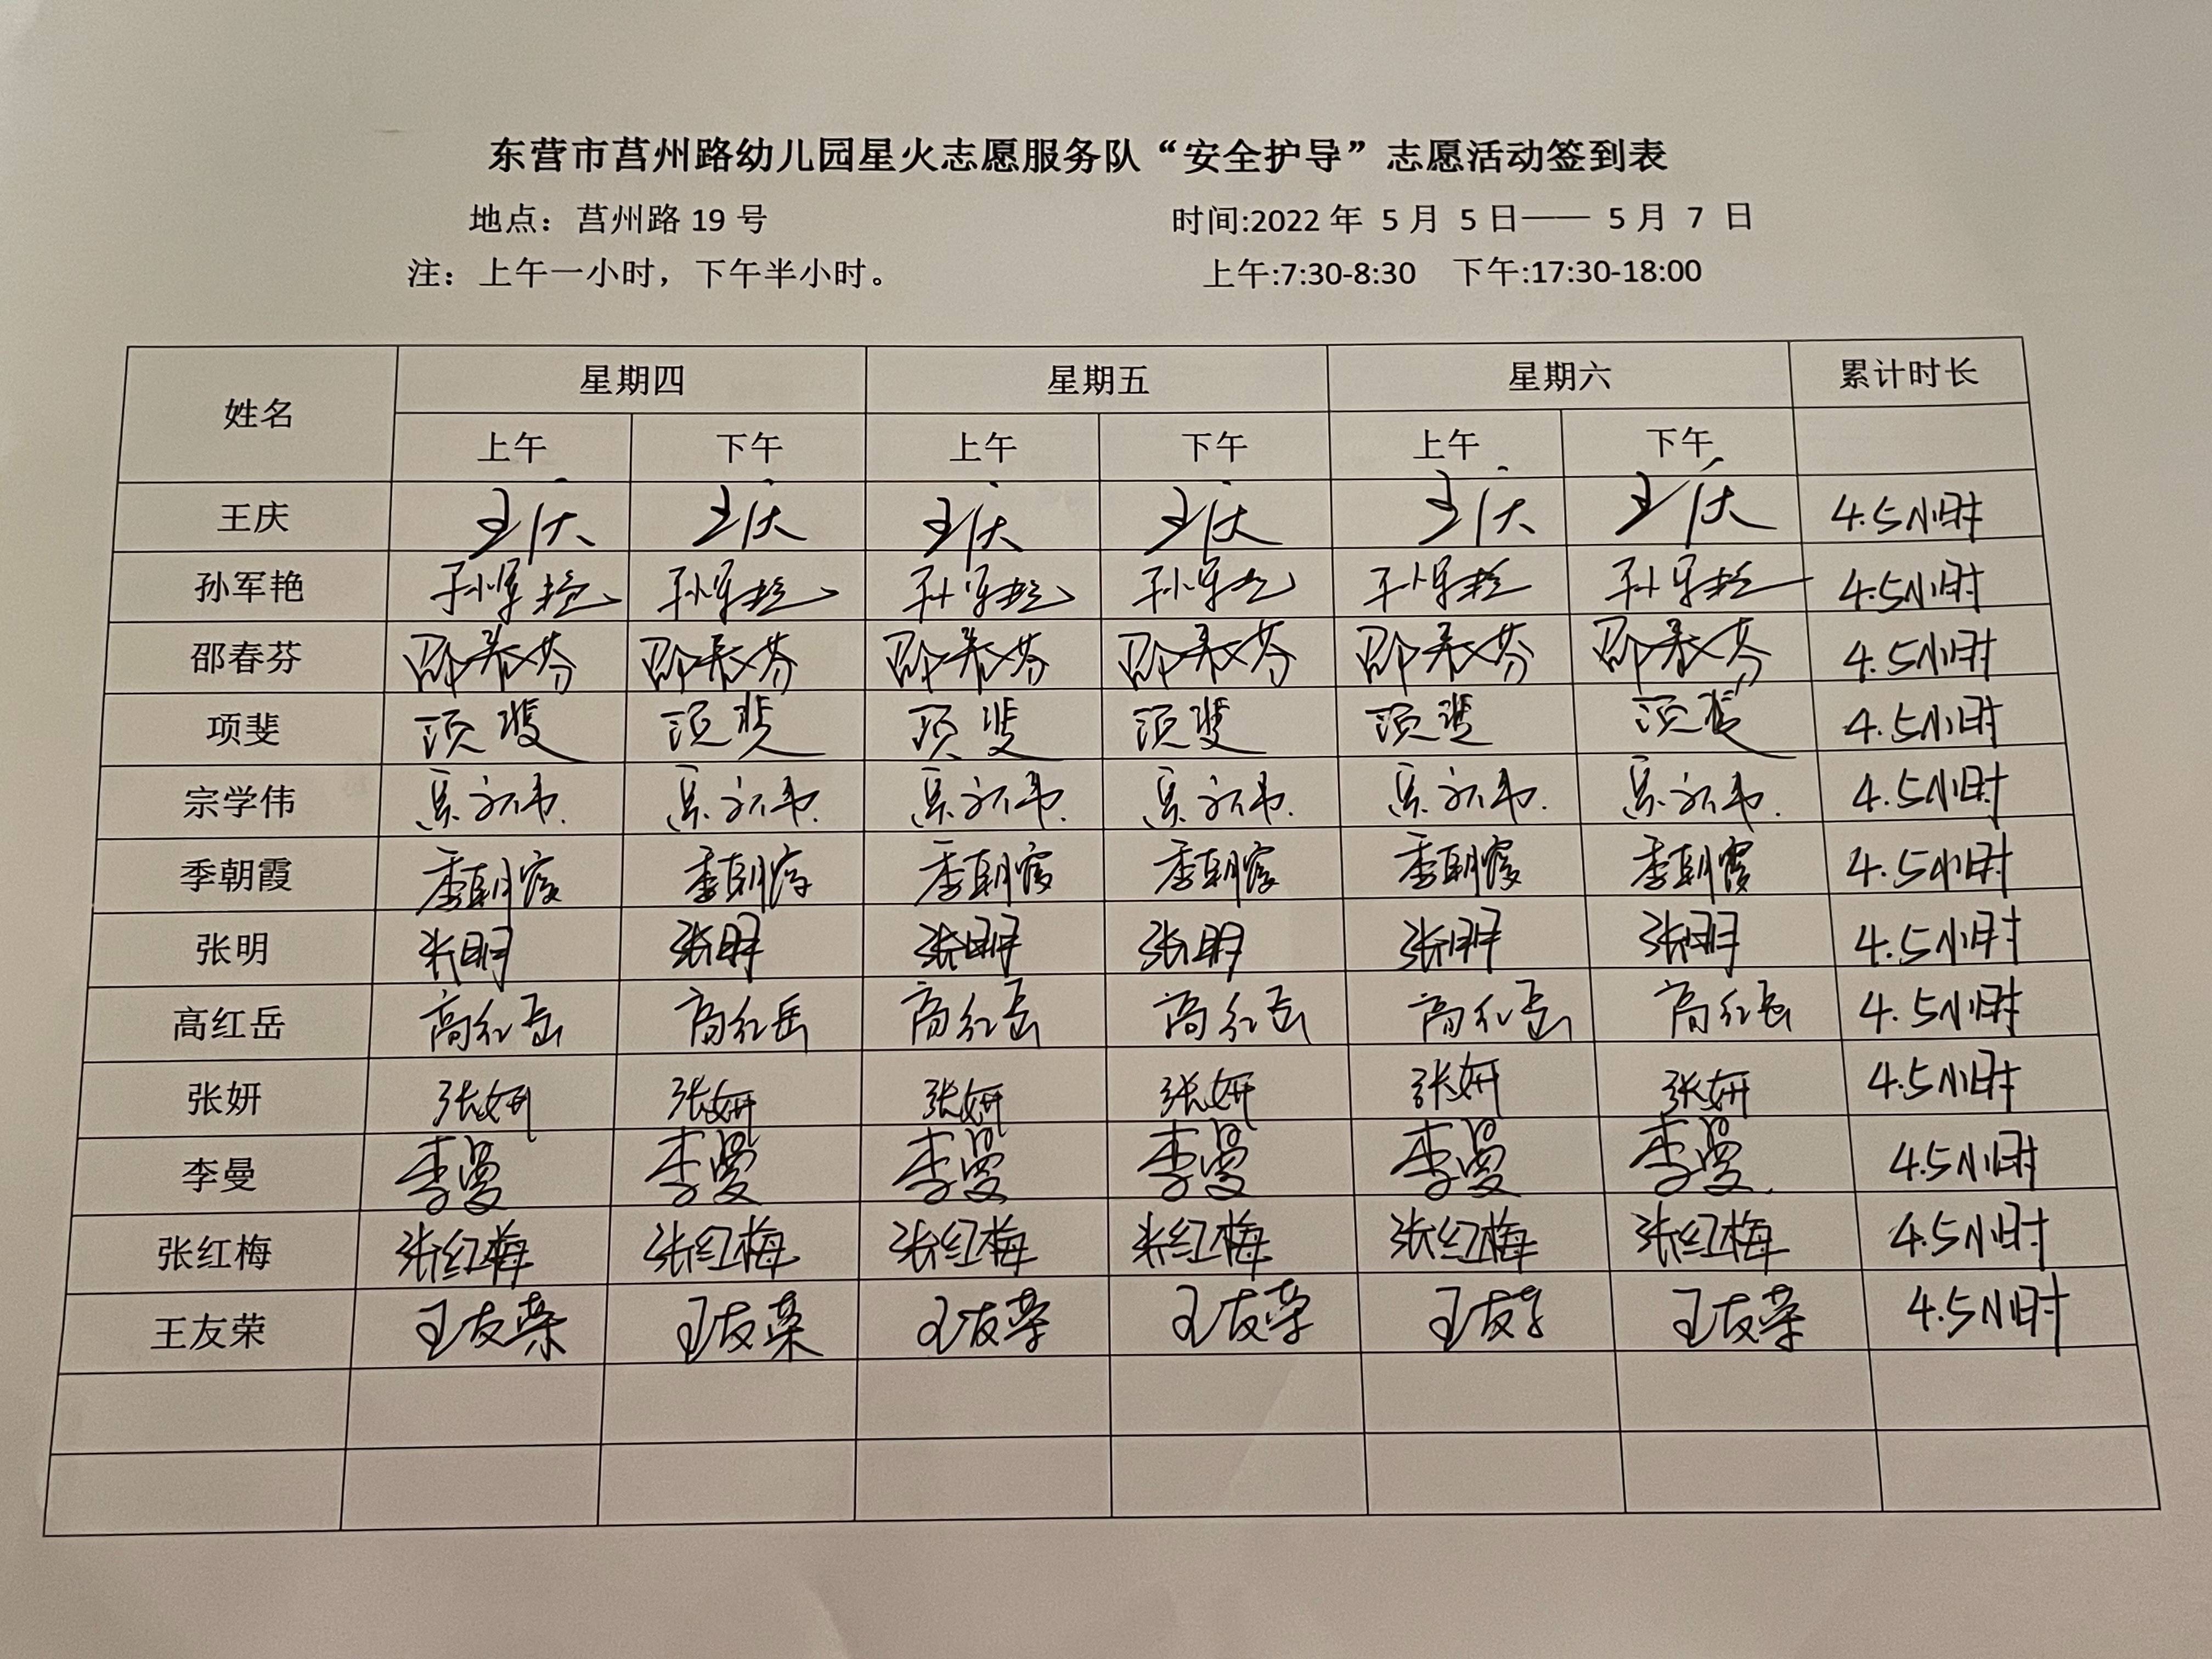 东营市莒州路幼儿园星火志愿服务队“安全护导”志愿活动签到表
地点：莒州路 19 号 时间:2022 年 5 月 5 日—— 5 月 7 日
注：上午一小时，下午半小时。 上午:7:30-8:30 下午:17:30-18:00
姓名 星期四 星期五 星期六 累计时长
上午 下午 上午 下午 上午 下午
王庆 王庆 王庆 王庆 王庆 王庆 王庆 4.5小时
孙军艳 孙军艳 孙军艳 孙军艳 孙军艳 孙军艳 孙军艳 4.5小时
邵春芬 邵春芬 邵春芬 邵春芬 邵春芬 邵春芬 邵春芬 4.5小时
项斐 项斐 项斐 项斐 项斐 项斐 项斐 4.5小时
宗学伟 宗学伟 宗学伟 宗学伟 宗学伟 宗学伟 宗学伟 4.5小时
季朝霞 季朝霞 季朝霞 季朝霞 季朝霞 季朝霞 季朝霞 4.5小时
张明 张明 张明 张明 张明 张明 张明 4.5小时
高红岳 高红岳 高红岳 高红岳 高红岳 高红岳 高红岳 4.5小时
张妍 张妍 张妍 张妍 张妍 张妍 张妍 4.5小时
李曼 李曼 李曼 李曼 李曼 李曼 李曼 4.5小时
张红梅 张红梅 张红梅 张红梅 张红梅 张红梅 张红梅 4.5小时
王友荣 王友荣 王友荣 王友荣 王友荣 王友荣 王友荣 4.5小时